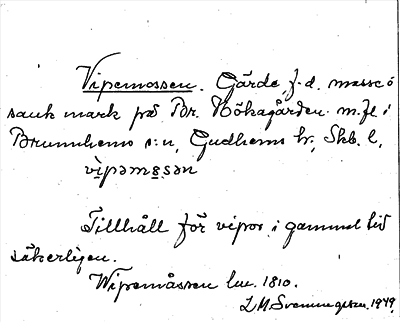 Vipemossen. Gärde, f.d. mosse o
sank mark på Br. Bökagården m.fl. i
Brunnhems s:n, Gudhems hr, Skb. l.
vìpəmo̱s̱ən
Tillhåll för vipor i gammal tid
säkerligen.
Wipemåssen lm. 1810.
L M Svenungsson. 1949.